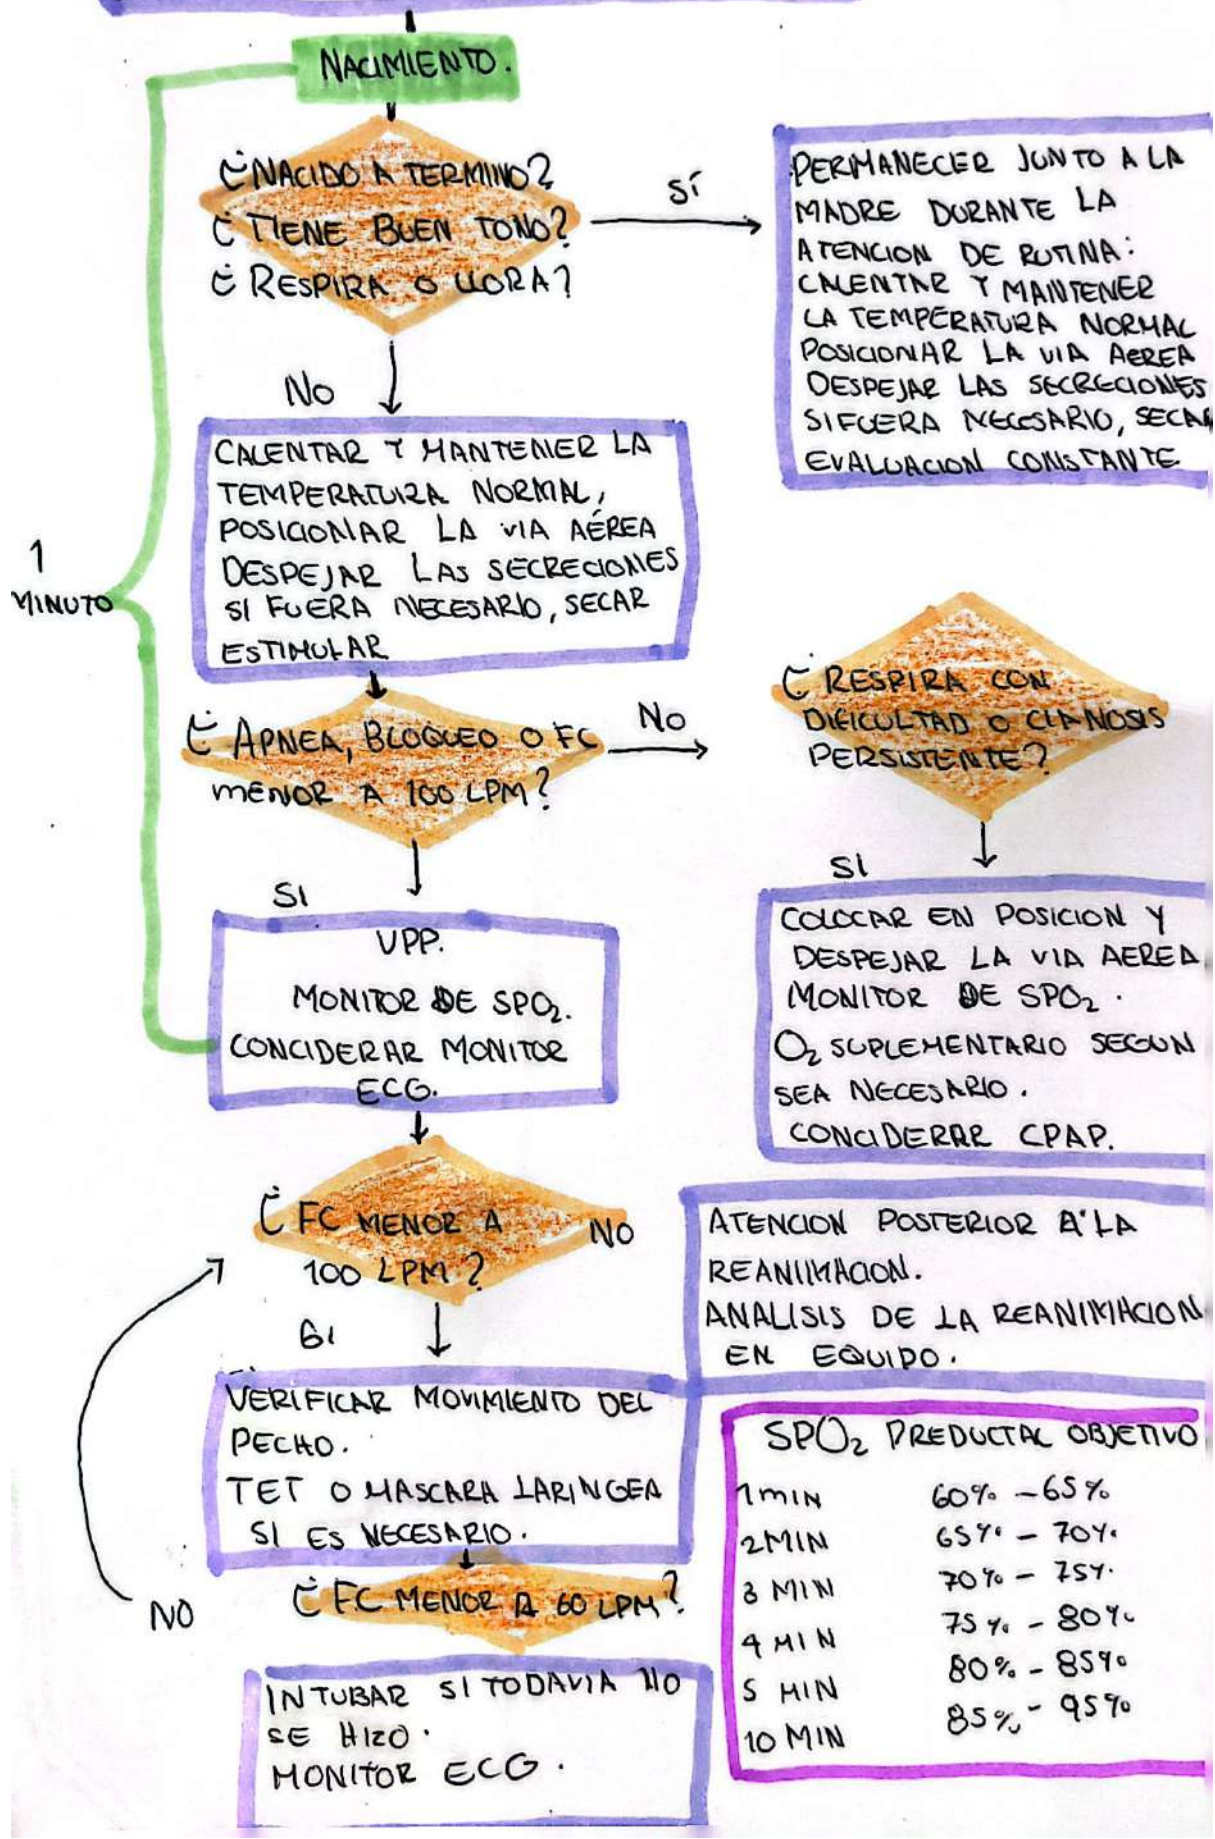 NACIMIENTO.
¿NACIDO A TERMINO?
¿TIENE BUEN TONO?
¿RESPIRA O LLORA?
SÍ
PERMANECER JUNTO A LA
MADRE DURANTE LA
ATENCION DE RUTINA:
CALENTAR Y MANTENER
LA TEMPERATURA NORMAL
POSICIONAR LA VIA AEREA
DESPEJAR LAS SECRECIONES
SI FUERA NECESARIO, SECAR
EVALUACION CONSTANTE
NO
CALENTAR Y MANTENER LA
TEMPERATURA NORMAL,
POSICIONAR LA VIA AÉREA
DESPEJAR LAS SECRECIONES
SI FUERA NECESARIO, SECAR
ESTIMULAR
1
MINUTO
¿APNEA, BLOQUEO O FC
MENOR A 100 LPM?
NO
¿RESPIRA CON
DIFICULTAD O CIANOSIS
PERSISTENTE?
SI
VPP.
MONITOR DE SPO2.
CONCIDERAR MONITOR
ECG.
SI
COLOCAR EN POSICION Y
DESPEJAR LA VIA AEREA
MONITOR DE SPO2.
O2 SUPLEMENTARIO SEGUN
SEA NECESARIO.
CONCIDERAR CPAP.
¿FC MENOR A
100 LPM?
NO
ATENCION POSTERIOR A LA
REANIMACION.
ANALISIS DE LA REANIMACION
EN EQUIPO.
SI
VERIFICAR MOVIMIENTO DEL
PECHO.
TET O MASCARA LARINGEA
SI ES NECESARIO.
¿FC MENOR A 60 LPM?
NO
INTUBAR SI TODAVIA NO
SE HIZO.
MONITOR ECG.
SPO2 PREDUCTAL OBJETIVO
1 MIN 60% - 65%
2 MIN 65% - 70%
3 MIN 70% - 75%
4 MIN 75% - 80%
5 MIN 80% - 85%
10 MIN 85% - 95%